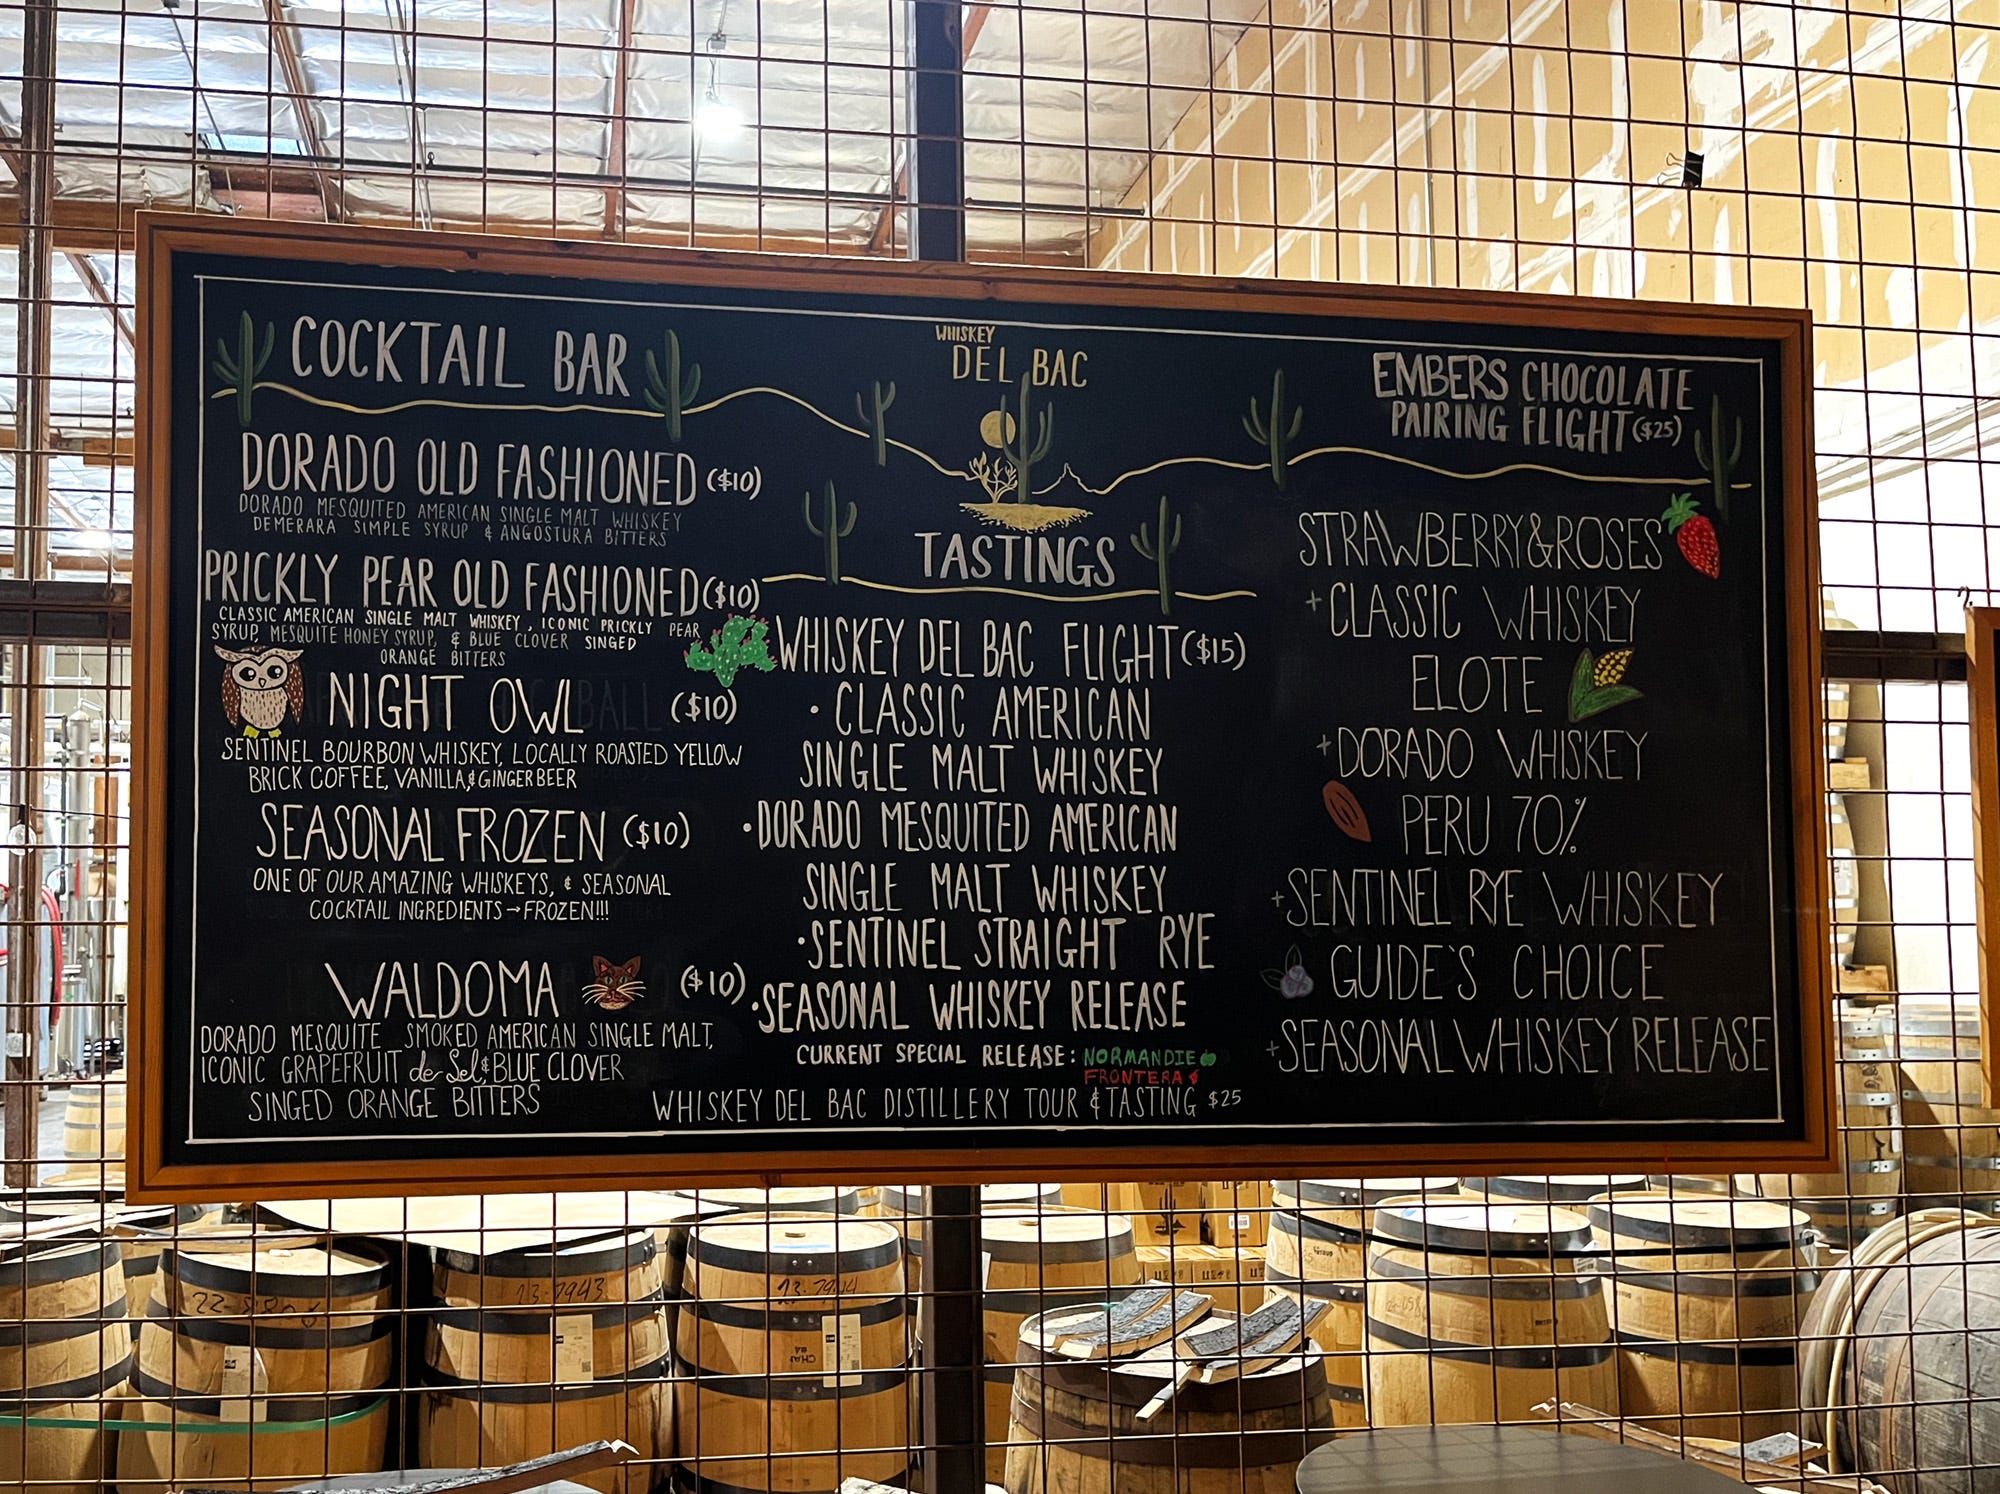 COCKTAIL BAR
DORADO OLD FASHIONED ($10)
DORADO MESQUITED AMERICAN SINGLE MALT WHISKEY
DEMERARA SIMPLE SYRUP & ANGOSTURA BITTERS
PRICKLY PEAR OLD FASHIONED ($10)
CLASSIC AMERICAN SINGLE MALT WHISKEY, ICONIC PRICKLY PEAR
SYRUP, MESQUITE HONEY SYRUP, & BLUE CLOVER SINGED
ORANGE BITTERS
NIGHT OWL ($10)
SENTINEL BOURBON WHISKEY, LOCALLY ROASTED YELLOW
BRICK COFFEE, VANILLA, & GINGER BEER
SEASONAL FROZEN ($10)
ONE OF OUR AMAZING WHISKEYS, & SEASONAL
COCKTAIL INGREDIENTS → FROZEN!!!
WALDOMA ($10)
DORADO MESQUITE SMOKED AMERICAN SINGLE MALT,
ICONIC GRAPEFRUIT de Sel, & BLUE CLOVER
SINGED ORANGE BITTERS
WHISKEY
DEL BAC
TASTINGS
WHISKEY DEL BAC FLIGHT ($15)
• CLASSIC AMERICAN
SINGLE MALT WHISKEY
• DORADO MESQUITED AMERICAN
SINGLE MALT WHISKEY
• SENTINEL STRAIGHT RYE
• SEASONAL WHISKEY RELEASE
CURRENT SPECIAL RELEASE: NORMANDIE
FRONTERA
WHISKEY DEL BAC DISTILLERY TOUR & TASTING $25
EMBERS CHOCOLATE
PAIRING FLIGHT ($25)
STRAWBERRY & ROSES
+ CLASSIC WHISKEY
ELOTE
+ DORADO WHISKEY
PERU 70%
+ SENTINEL RYE WHISKEY
GUIDE'S CHOICE
+ SEASONAL WHISKEY RELEASE
23-7943
23-7944